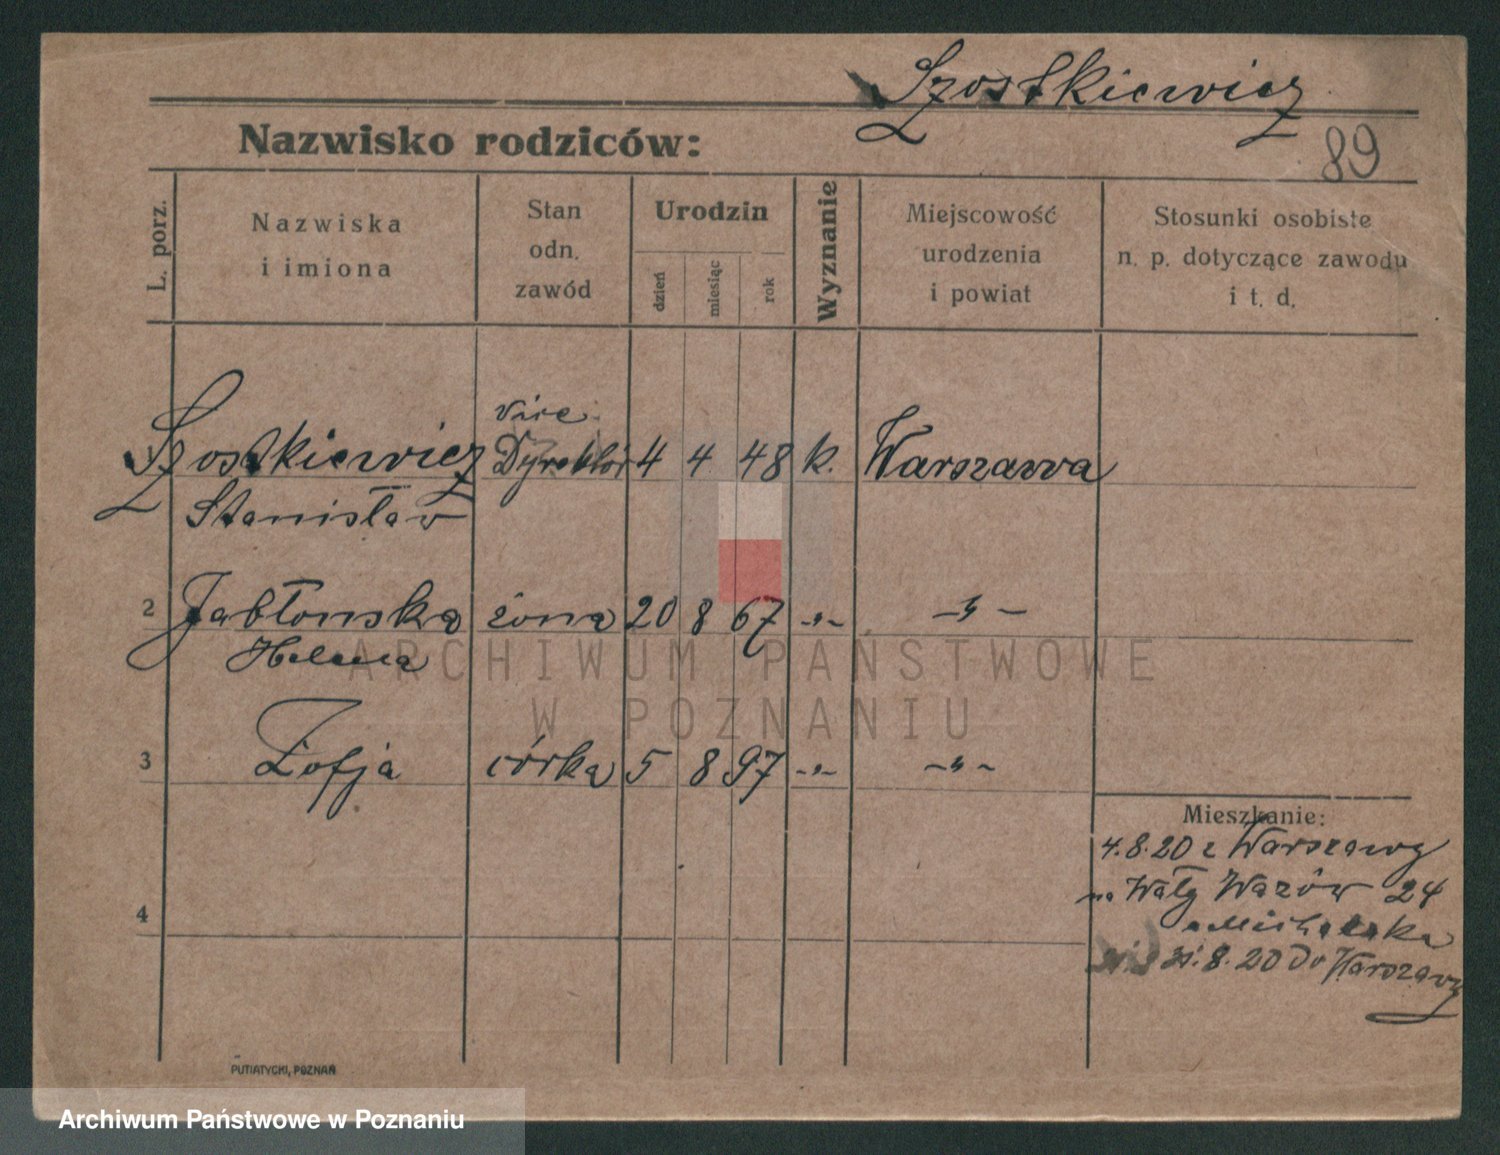 Szostkiewicz
Nazwisko rodziców:
89
L. porz.
Nazwiska
i imiona
Stan
odn.
zawód
Urodzin
dzień
miesiąc
rok
Wyznanie
Miejscowość
urodzenia
i powiat
Stosunki osobiste
n. p. dotyczące zawodu
i t. d.
1 Szostkiewicz vice Dyrektor 4 4 48 k. Warszawa
Stanisław
2 Jabłonska żona 20 8 67 -"- -"-
Helena
3 Zofja córka 5 8 97 -"- -"-
4
Mieszkanie:
4.8.20 z Warszawy
na Wały Wazów 24
31.8.20 do Warszawy
PUTIATYCKI, POZNAŃ
ARCHIWUM PAŃSTWOWE
W POZNANIU
Archiwum Państwowe w Poznaniu